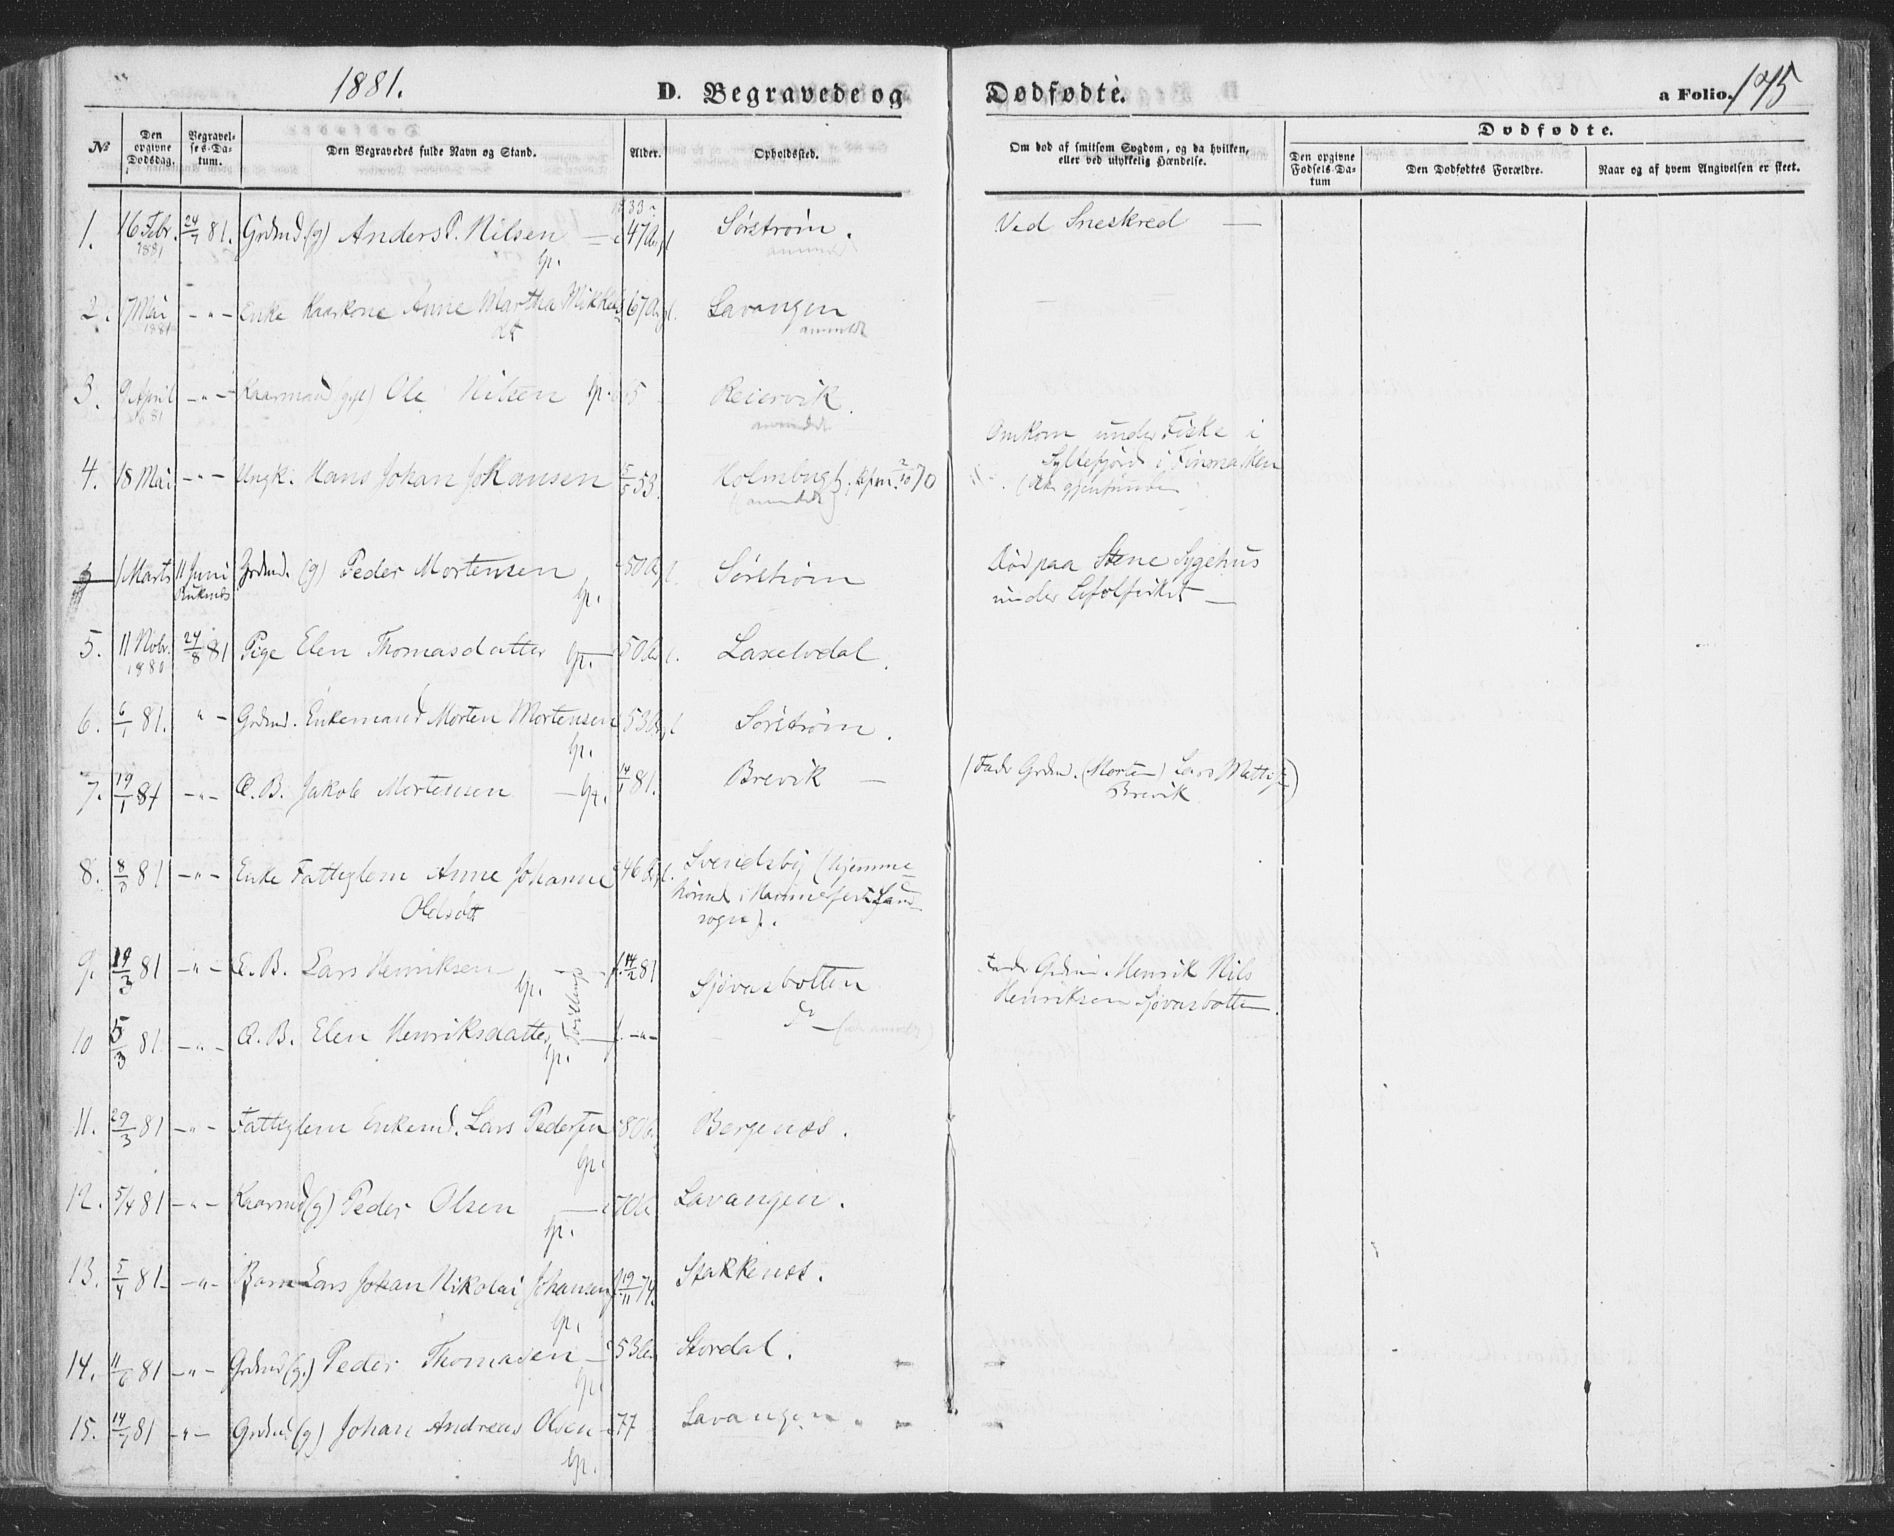 1881.
D. Begravede og
Dødfødte.
a Folio. 175
No
Den opgivne Dødsdag.
Begravelses-Datum.
Den Begravedes fulde Navn og Stand.
Alder.
Opholdssted.
Om død af smitsom Sygdom, og da hvilken, eller ved ulykkelig Hændelse.
Dødfødte.
Den opgivne Fødsels-Datum
Den Dødfødtes Forældre.
Naar og af hvem Angivelsen er skeet.
1. 16 Febr. 1881 24/7 81. Grdmd. (g) Anders P. Nilsen 47 Sørstrøm. Ved Sneskred —
lp.
2. 7 Mai 1881 - " - Enke Kaarkone Anne Martha Mikkels 67 Lavangen
dt anmeldt
3. 9 April 81 - " - Kaarmand Ole Nilsen lp. Reiervik.
anmeldt
4. 18 Mai - " - Ungk. Hans Johan Johansen 5/5 53. Holmbugt, (anmeldt) Omkom under Fiske i
Syltefjord i Finmarken
(ikke gjenfunden
1 Marts 11 Juni Grdmd. (g) Peder Mortensen 50 Sørstrøm Død paa Stene Sygehus
lp. under Lofotfisket —
5. 11 Novbr. 1880 24/8 81 Pige Elen Thomasdatter lp. 50 Laxelvdal.
6. 6/1 81. " - Grdmd. Enkemand Morten Mortensen 53 Sørstrøm.
lp.
7. 19/1 81 - " - Æ. B. Jakob Mortensen — lp. 14/1 81. Brevik — (Fader Grdmd. (Morten) Lars
Brevik)
8. 8/3 81 - " - Enke Fattiglem Anne Johanne 46 Svendsby (hjemme-
Olelsdtt hørende i Hammerfest Land-
sogn).
9. 19/3 81 - " - Æ. B. Lars Henriksen 14/2 81 Sjøvasbotten Fader Grdmd. Henrik Nils
lp. Henriksen Sjøvasbotten.
10 5/3 81 - " - Æ. B. Elen Henriksdatter - " -
lp.
11. 29/3 81 - " - Fattiglem Enkemd. Lars Pedersen 80 Bergenæs.
lp.
12. 5/4 81 - " - Kaarmd (g) Peder Olsen 70 Lavangen.
lp.
13. 5/4 81 - " - Barn Lars Johan Nikolai Johansen f. 19/11 74. Stakkenæs.
lp.
14. 11/6 81 - " - Grdmd (g.) Peder Thomasen 53 Stordal.
lp.
15. 14/7 81 - " - Grdmd (g) Johan Andreas Olsen 77 Lavangen.
lp.